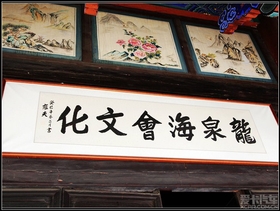 龍泉海會文化